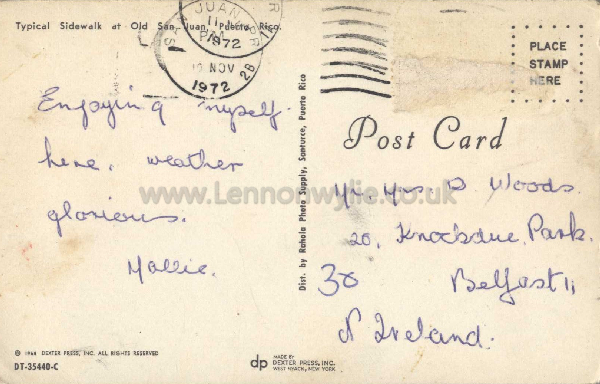 Typical Sidewalk at Old San Juan, Puerto Rico.
SAN JUAN PR
11 NOV
PM
1972
NOV
1972
2B
PLACE
STAMP
HERE
Post Card
Enjoying myself
here, weather
glorious.
Mollie.
Mr. Mrs. D Woods.
20, Knockdue Park.
30 Belfast 11
N Ireland.
Dist. by Rahola Photo Supply, Santurce, Puerto Rico
www.Lennonwylie.co.uk
© 1968 DEXTER PRESS, INC. ALL RIGHTS RESERVED
DT-35440-C
dp MADE BY
DEXTER PRESS, INC.
WEST NYACK, NEW YORK